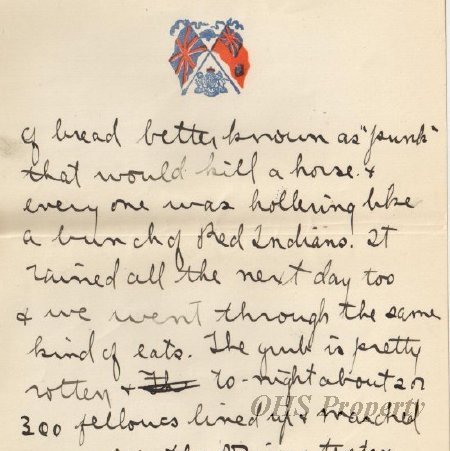 of bread better known as "punk"
that would kill a horse. &
every one was hollering like
a bunch of Red Indians. It
rained all the next day too
& we went through the same
kind of eats. The grub is pretty
rotten & to-night about 2 or
300 fellows lined up & marched
OHS Property